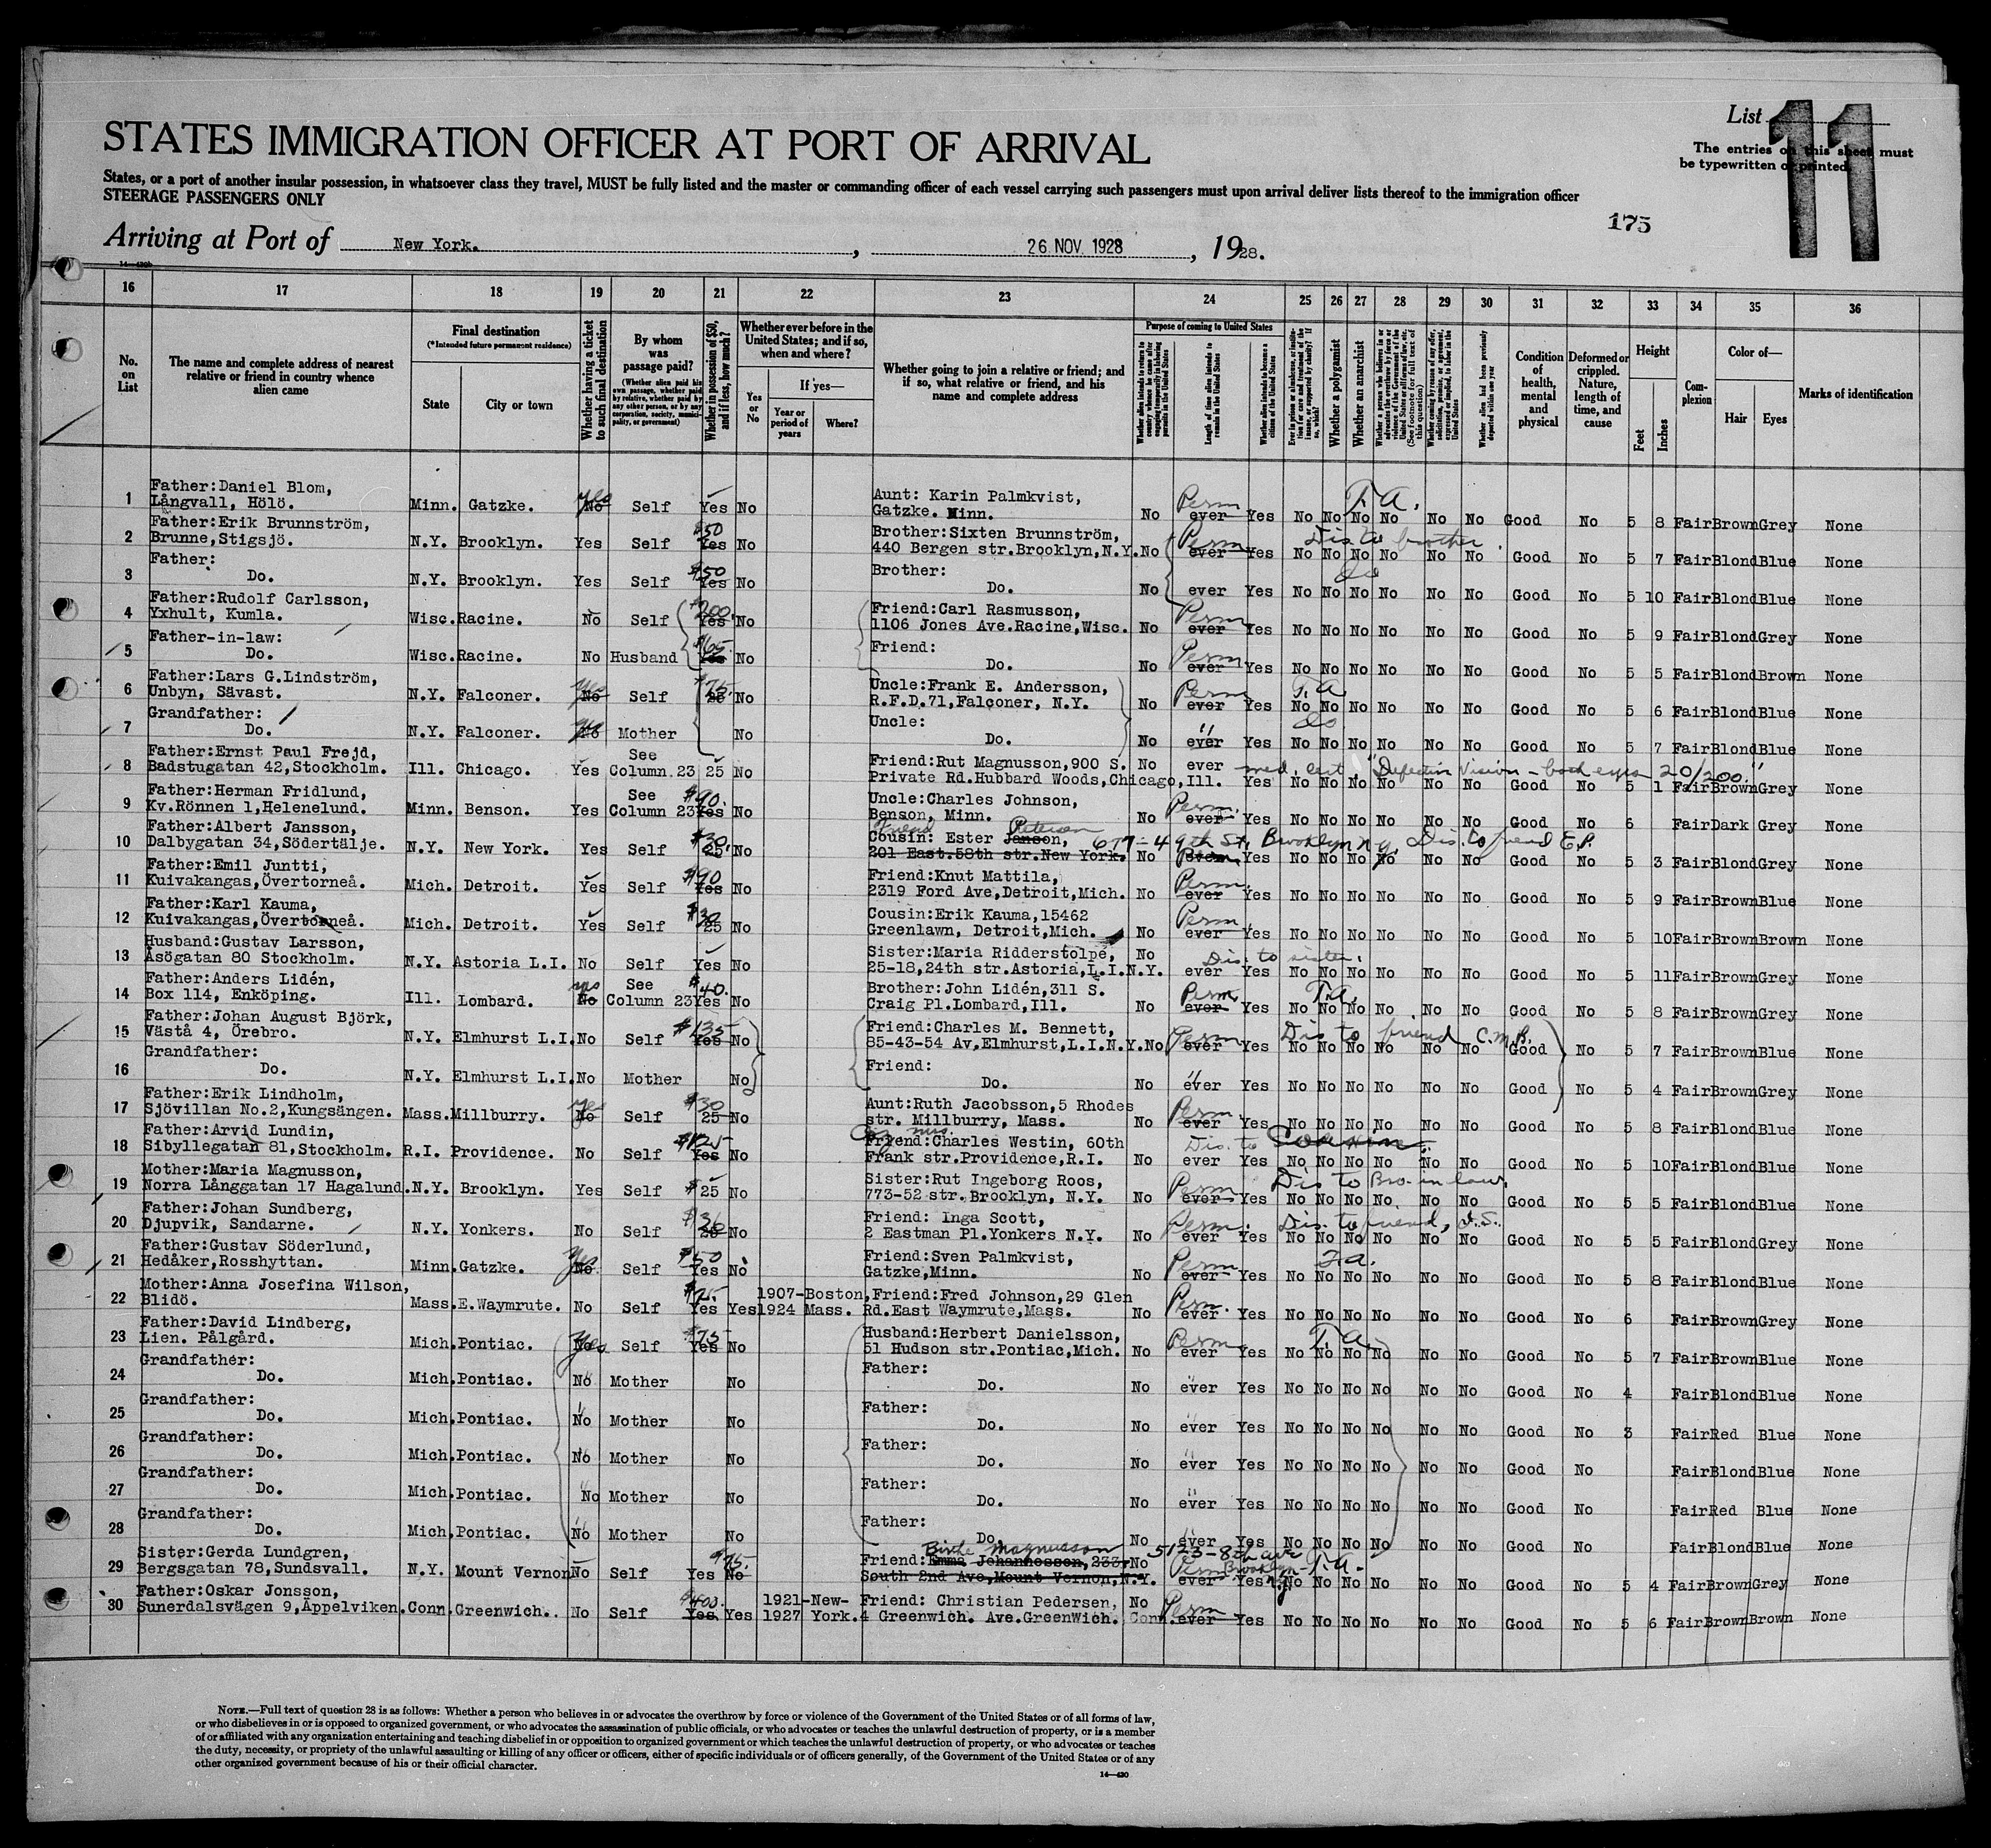 List 11
The entries on this sheet must
be typewritten or printed
STATES IMMIGRATION OFFICER AT PORT OF ARRIVAL
States, or a port of another insular possession, in whatsoever class they travel, MUST be fully listed and the master or commanding officer of each vessel carrying such passengers must upon arrival deliver lists thereof to the immigration officer
STEERAGE PASSENGERS ONLY
175
Arriving at Port of New York. , 26 NOV. 1928 , 1928.
16 17 18 19 20 21 22 23 24 25 26 27 28 29 30 31 32 33 34 35 36
No. on List
The name and complete address of nearest relative or friend in country whence alien came
Final destination
(*Intended future permanent residence)
State
City or town
Whether having a ticket to such final destination
By whom was passage paid?
(Whether alien paid his own passage, whether paid by relative, whether paid by any other person, or by any corporation, society, municipality, or government)
Whether in possession of $50, and if less, how much?
Whether ever before in the United States; and if so, when and where?
Yes or No
If yes—
Year or period of years
Where?
Whether going to join a relative or friend; and if so, what relative or friend, and his name and complete address
Purpose of coming to United States
Length of time alien intends to remain in the United States
Whether alien intends to become a citizen of the United States
Whether a polygamist
Whether an anarchist
Condition of health, mental and physical
Deformed or crippled. Nature, length of time, and cause
Height
Feet
Inches
Complexion
Color of—
Hair
Eyes
Marks of identification
1 Father:Daniel Blom,
Långvall, Hölö. Minn. Gatzke. No yes Self Yes No Aunt: Karin Palmkvist,
Gatzke. Minn. No ever Perm Yes No No No No No No Good No 5 8 Fair Brown Grey None
T.A.
2 Father:Erik Brunnström,
Brunne,Stigsjö. N.Y. Brooklyn. Yes Self Yes $50 No Brother:Sixten Brunnström,
440 Bergen str.Brooklyn,N.Y. No ever Perm Yes No No No No No No Good No 5 7 Fair Blond Blue None
Dis. to brother.
3 Father:
Do. N.Y. Brooklyn. Yes Self Yes $50 No Brother:
Do. No ever Yes No No No No No No Good No 5 10 Fair Blond Blue None
do
4 Father:Rudolf Carlsson,
Yxhult, Kumla. Wisc. Racine. No Self Yes $200. No Friend:Carl Rasmusson,
1106 Jones Ave.Racine,Wisc. No ever Perm Yes No No No No No No Good No 5 9 Fair Blond Grey None
5 Father-in-law:
Do. Wisc. Racine. No Husband Yes $65. No Friend:
Do. No ever Perm Yes No No No No No No Good No 5 5 Fair Blond Brown None
6 Father:Lars G.Lindström,
Unbyn, Sävast. N.Y. Falconer. No Yes Self 25 $75. No Uncle:Frank E. Andersson,
R.F.D.71,Falconer, N.Y. No ever Perm Yes No No No No No No Good No 5 6 Fair Blond Blue None
T.A.
7 Grandfather:
Do. N.Y. Falconer. No Yes Mother No Uncle:
Do. No ever " Yes No No No No No No Good No 5 7 Fair Blond Blue None
do
8 Father:Ernst Paul Frejd,
Badstugatan 42,Stockholm. Ill. Chicago. Yes See Column.23 25 No Friend:Rut Magnusson,900 S.
Private Rd.Hubbard Woods,Chicago,Ill. No ever Yes No No No No No No Good No 5 1 Fair Brown Grey None
med. cert. "Defective Vision - both eyes 20/200."
9 Father:Herman Fridlund,
Kv.Rönnen 1,Helenelund. Minn. Benson. Yes See Column 23 Yes $90. No Uncle:Charles Johnson,
Benson, Minn. No ever Perm. Yes No No No No No No Good No 6 Fair Dark Grey None
10 Father:Albert Jansson,
Dalbygatan 34,Södertälje. N.Y. New York. Yes Self 25 $30. No Cousin: Friend Ester Janson, Peterson
201 East.58th str.New York. 677-49th St. Brooklyn N.Y. No Perm Yes No No No No No No Good No 5 3 Fair Brown Grey None
Dis. to friend E.P.
11 Father:Emil Juntti,
Kuivakangas,Övertorneå. Mich. Detroit. Yes Self Yes $90 No Friend:Knut Mattila,
2319 Ford Ave,Detroit,Mich. No ever Perm. Yes No No No No No No Good No 5 9 Fair Brown Blue None
12 Father:Karl Kauma,
Kuivakangas,Övertorneå. Mich. Detroit. Yes Self 25 $30 No Cousin:Erik Kauma,15462
Greenlawn, Detroit,Mich. No ever Perm Yes No No No No No No Good No 5 10 Fair Brown Brown None
13 Husband:Gustav Larsson,
Åsögatan 80 Stockholm. N.Y. Astoria L.I. No Self Yes No Sister:Maria Ridderstolpe,
25-18,24th str.Astoria,L.I.N.Y. No ever Yes No No No No No No Good No 5 11 Fair Brown Grey None
Dis. to sister.
14 Father:Anders Lidén,
Box 114, Enköping. Ill. Lombard. No yes See Column 23 Yes $40. No Brother:John Lidén,311 S.
Craig Pl.Lombard,Ill. No ever Perm. Yes No No No No No No Good No 5 8 Fair Brown Grey None
T.A.
15 Father:Johan August Björk,
Västå 4, Örebro. N.Y. Elmhurst L.I. No Self Yes $135 No Friend:Charles M. Bennett,
85-43-54 Av,Elmhurst,L.I.N.Y. No ever Perm Yes No No No No No No Good No 5 7 Fair Brown Blue None
Dis to friend C.M.B.
16 Grandfather:
Do. N.Y. Elmhurst L.I. No Mother No Friend:
Do. No ever " Yes No No No No No No Good No 5 4 Fair Brown Grey None
17 Father:Erik Lindholm,
Sjövillan No.2,Kungsängen. Mass. Millburry. No yes Self 25 $30 No Aunt:Ruth Jacobsson,5 Rhodes
str. Millburry, Mass. No ever Perm. Yes No No No No No No Good No 5 8 Fair Blond Blue None
18 Father:Arvid Lundin,
Sibyllegatan 81,Stockholm. R.I. Providence. No Self Yes $125 No Friend:Charles Westin, 60th
Frank str.Providence,R.I. No ever Yes No No No No No No Good No 5 10 Fair Blond Blue None
Dis. to Cousin
19 Mother:Maria Magnusson,
Norra Långgatan 17 Hagalund. N.Y. Brooklyn. Yes Self $25 No Sister:Rut Ingeborg Roos,
773-52 str.Brooklyn, N.Y. No ever Perm Yes No No No No No No Good No 5 5 Fair Blond Blue None
Dis to Bro-in law.
20 Father:Johan Sundberg,
Djupvik, Sandarne. N.Y. Yonkers. No Self No Friend: Inga Scott,
2 Eastman Pl.Yonkers N.Y. No ever Perm. Yes No No No No No No Good No 5 5 Fair Blond Grey None
Dis. to friend, I.S.
21 Father:Gustav Söderlund,
Hedåker,Rosshyttan. Minn. Gatzke. No Yes Self Yes $50 No Friend:Sven Palmkvist,
Gatzke,Minn. No ever Perm Yes No No No No No No Good No 5 8 Fair Blond Blue None
T.A.
22 Mother:Anna Josefina Wilson,
Blidö. Mass. E.Waymrute. No Self Yes Yes 1907-1924 Boston, Mass. Friend:Fred Johnson,29 Glen
Rd.East Waymrute,Mass. No ever Perm. Yes No No No No No No Good No 6 Fair Brown Grey None
23 Father:David Lindberg,
Lien. Pålgård. Mich. Pontiac. Yes Self Yes $75 No Husband:Herbert Danielsson,
51 Hudson str.Pontiac,Mich. No ever Perm Yes No No No No No No Good No 5 7 Fair Brown Blue None
T.A.
24 Grandfather:
Do. Mich. Pontiac. No Mother No Father:
Do. No ever " Yes No No No No No No Good No 4 Fair Blond Blue None
25 Grandfather:
Do. Mich. Pontiac. No Mother No Father:
Do. No ever " Yes No No No No No No Good No 3 Fair Red Blue None
26 Grandfather:
Do. Mich. Pontiac. No Mother No Father:
Do. No ever " Yes No No No No No No Good No Fair Blond Blue None
27 Grandfather:
Do. Mich. Pontiac. No Mother No Father:
Do. No ever " Yes No No No No No No Good No Fair Red Blue None
28 Grandfather:
Do. Mich. Pontiac. No Mother No Father:
Do. No ever " Yes No No No No No No Good No Fair Blond Blue None
29 Sister:Gerda Lundgren,
Bergsgatan 78,Sundsvall. N.Y. Mount Vernon No Self Yes $75. No Friend:Emma Johannesson,233, Birthe Magnusson
South 2nd Ave,Mount Vernon,N.Y. 5123-8th ave Brooklyn N.Y. No ever Perm Yes No No No No No No Good No 5 4 Fair Brown Grey None
T.A.
30 Father:Oskar Jonsson,
Sunerdalsvägen 9,Äppelviken. Conn. Greenwich. No Self Yes $400. Yes 1921-1927 New-York. Friend: Christian Pedersen,
4 Greenwich. Ave.GreenWich. Conn. No ever Perm Yes No No No No No No Good No 5 6 Fair Brown Brown None
NOTE.—Full text of question 28 is as follows: Whether a person who believes in or advocates the overthrow by force or violence of the Government of the United States or of all forms of law,
or who disbelieves in or is opposed to organized government, or who advocates the assassination of public officials, or who advocates or teaches the unlawful destruction of property, or is a member
of or affiliated with any organization entertaining and teaching disbelief in or opposition to organized government or which teaches the unlawful destruction of property, or who advocates or teaches
the duty, necessity, or propriety of the unlawful assaulting or killing of any officer or officers, either of specific individuals or of officers generally, of the Government of the United States or of any
other organized government because of his or their official character.
14—430